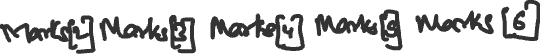 Marks[2] Marks[3] Marks[4] Marks[5] Marks [6]